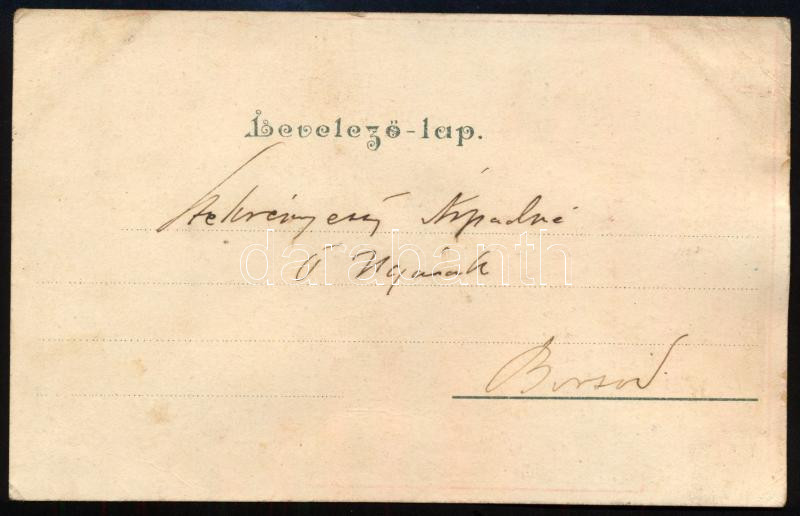 Levelező-lap.
Szekrényessy Árpádné
Ő Nagysának
darabanth
Borsod.